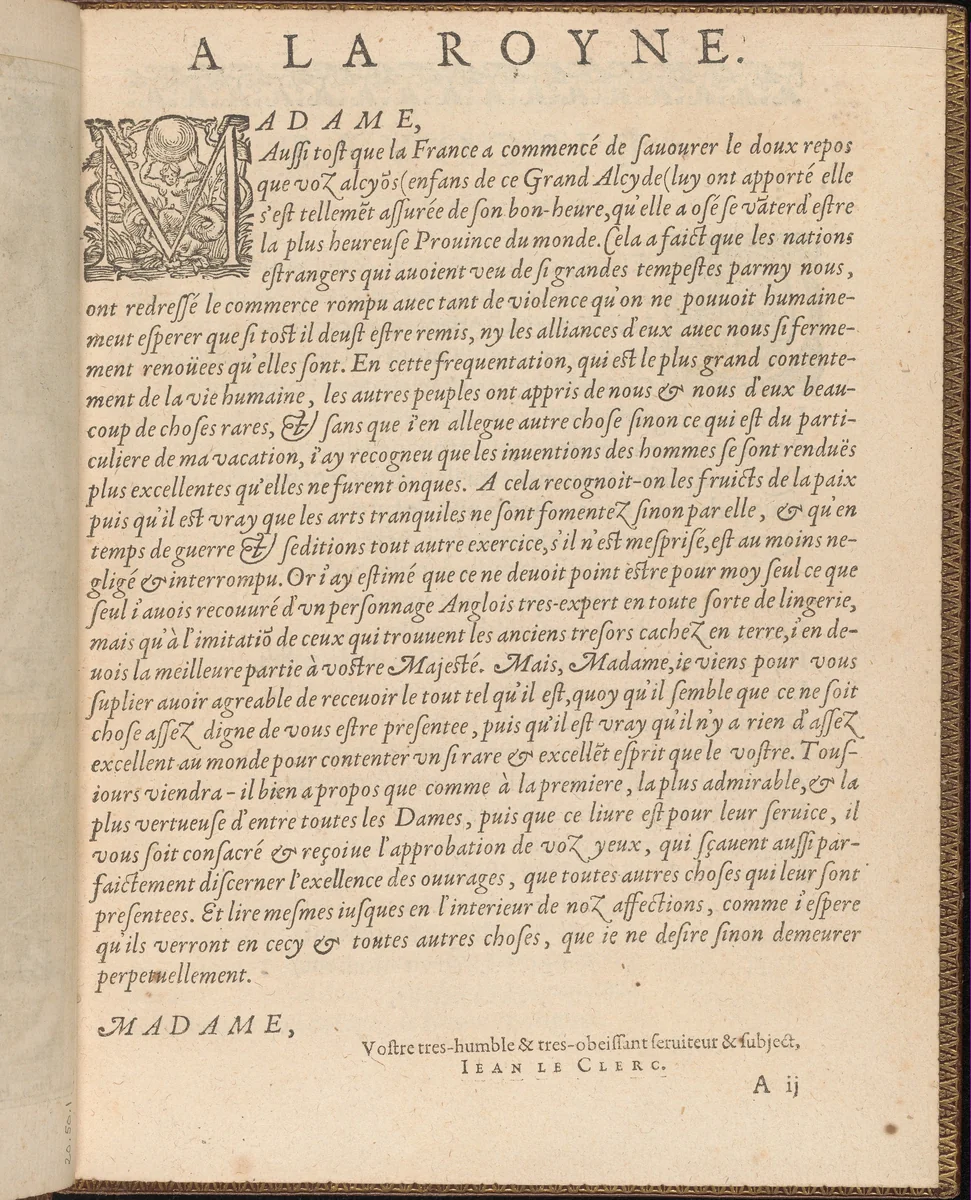 A LA ROYNE.
MADAME,
Auſſi toſt que la France a commencé de ſauourer le doux repos
que voz alcyõs (enfans de ce Grand Alcyde(luy ont apporté elle
s'eſt tellemẽt aſſurée de ſon bon-heure, qu'elle a oſé ſe vãter d'eſtre
la plus heureuſe Prouince du monde. Cela a faict que les nations
eſtrangers qui auoient veu de ſi grandes tempeſtes parmy nous,
ont redreſſé le commerce rompu auec tant de violence qu'on ne pouuoit humaine-
meut eſperer que ſi toſt il deuſt eſtre remis, ny les alliances d'eux auec nous ſi ferme-
ment renoüees qu'elles ſont. En cette frequentation, qui eſt le plus grand contente-
ment de la vie humaine, les autres peuples ont appris de nous & nous d'eux beau-
coup de choſes rares, & ſans que i'en allegue autre choſe ſinon ce qui eſt du parti-
culiere de ma vacation, i'ay recogneu que les inuentions des hommes ſe ſont renduës
plus excellentes qu'elles ne furent ònques. A cela recognoit-on les fruicts de la paix
puis qu'il eſt vray que les arts tranquiles ne ſont fomentez ſinon par elle, & qu'en
temps de guerre & ſeditions tout autre exercice, s'il n'eſt meſpriſé, eſt au moins ne-
gligé & interrompu. Or i'ay eſtimé que ce ne deuoit point eſtre pour moy ſeul ce que
ſeul i'auois recouuré d'vn perſonnage Anglois tres-expert en toute ſorte de lingerie,
mais qu'à l'imitatiõ de ceux qui trouuent les anciens treſors cachez en terre, i'en de-
uois la meilleure partie à voſtre Majeſté. Mais, Madame, ie viens pour vous
ſuplier auoir agreable de receuoir le tout tel qu'il eſt, quoy qu'il ſemble que ce ne ſoit
choſe aſſez digne de vous eſtre preſentee, puis qu'il eſt vray qu'il n'y a rien d'aſſez
excellent au monde pour contenter vn ſi rare & excellẽt eſprit que le voſtre. Touſ-
iours viendra-il bien a propos que comme à la premiere, la plus admirable, & la
plus vertueuſe d'entre toutes les Dames, puis que ce liure eſt pour leur ſeruice, il
vous ſoit conſacré & reçoiue l'approbation de voz yeux, qui ſçauent auſſi par-
faictement diſcerner l'exellence des ouurages, que toutes autres choſes qui leur ſont
preſentees. Et lire meſmes iuſques en l'interieur de noz affections, comme i'eſpere
qu'ils verront en cecy & toutes autres choſes, que ie ne deſire ſinon demeurer
perpetuellement.
MADAME,
Voſtre tres-humble & tres-obeiſſant ſeruiteur & ſubject,
IEAN LE CLERC.
A ij
20.50.1